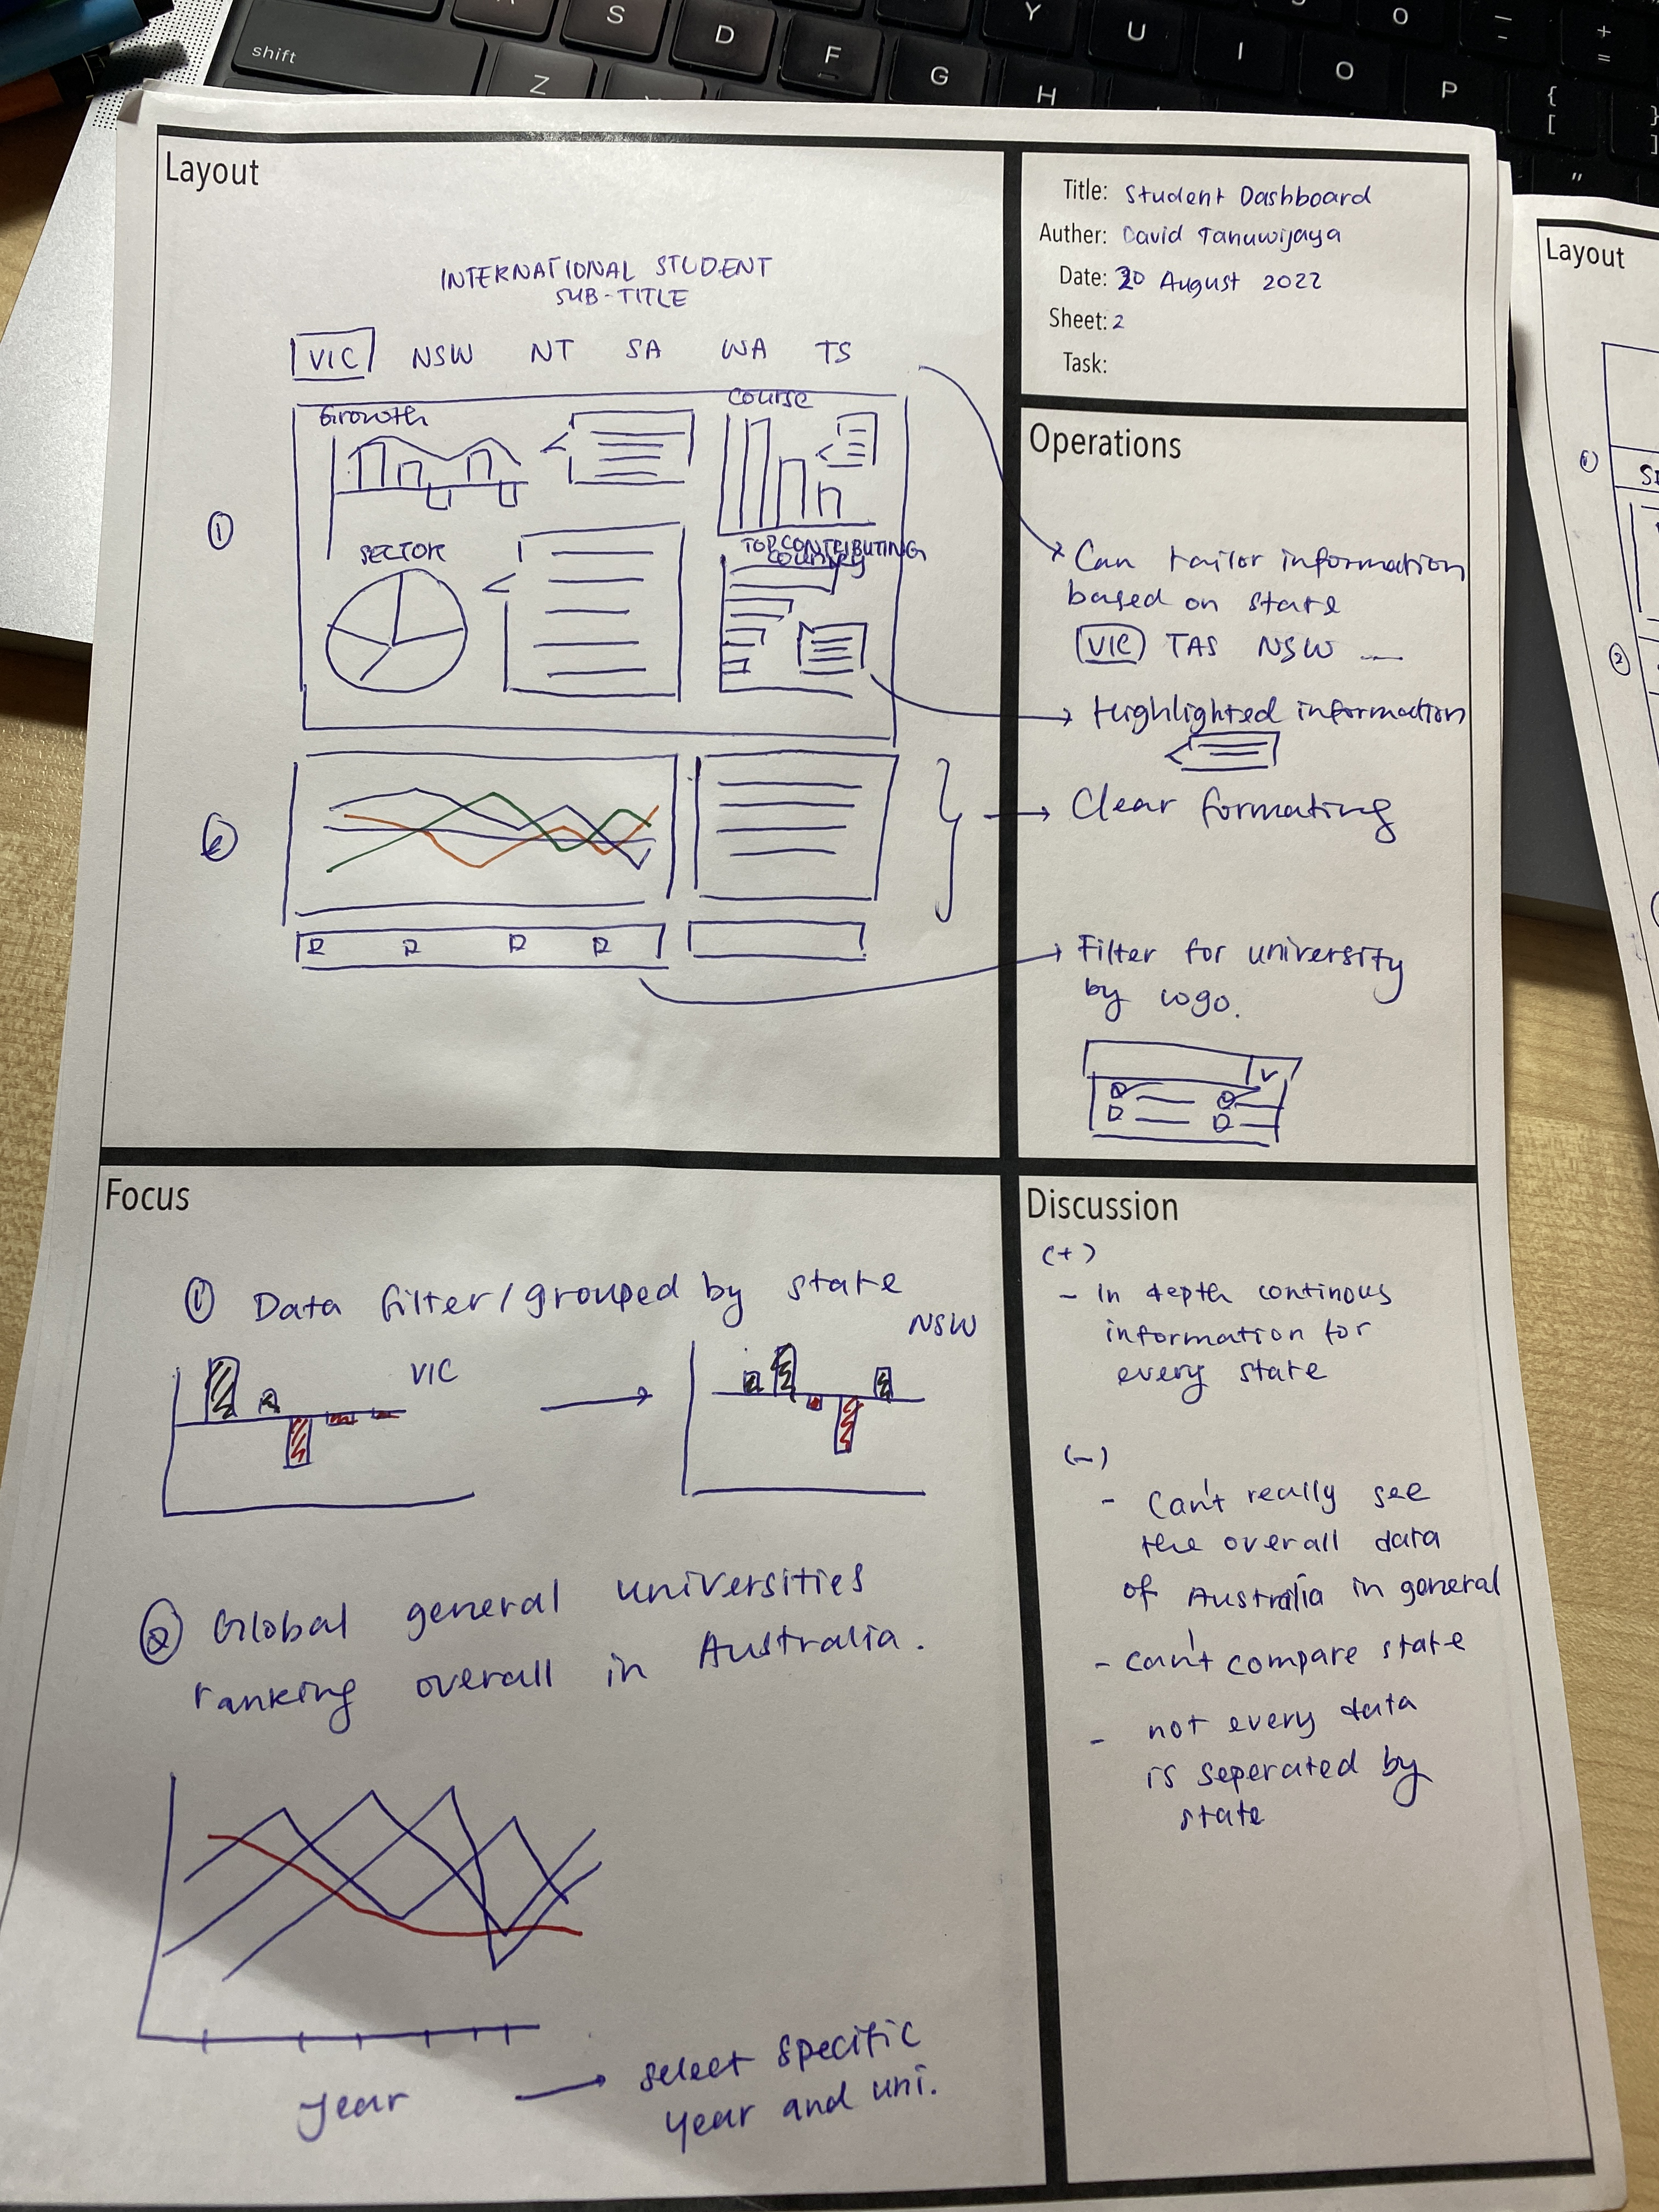 shift
A
S
D
F
G
H
Y
U
I
O
P
O
Z
{
[
}
]
"
–
–
+
=
Layout
INTERNATIONAL STUDENT
SUB-TITLE
VIC NSW NT SA WA TS
Growth
Course
①
SECTOR
TOP CONTRIBUTING
COUNTRY
②
Title: Student Dashboard
Auther: David Tanuwijaya
Date: 20 August 2022
Sheet: 2
Task:
Operations
Can tailor information
based on state
VIC TAS NSW
Highlighted information
Clear formating
Filter for university
by logo.
Focus
① Data filter/grouped by state
VIC
NSW
② Global general universities
ranking overall in Australia.
year
select specific
year and uni.
Discussion
(+)
- In depth continous
information for
every state
(-)
- Can't really see
the overall data
of Australia in general
- can't compare state
- not every data
is seperated by
state
Layout
①
②